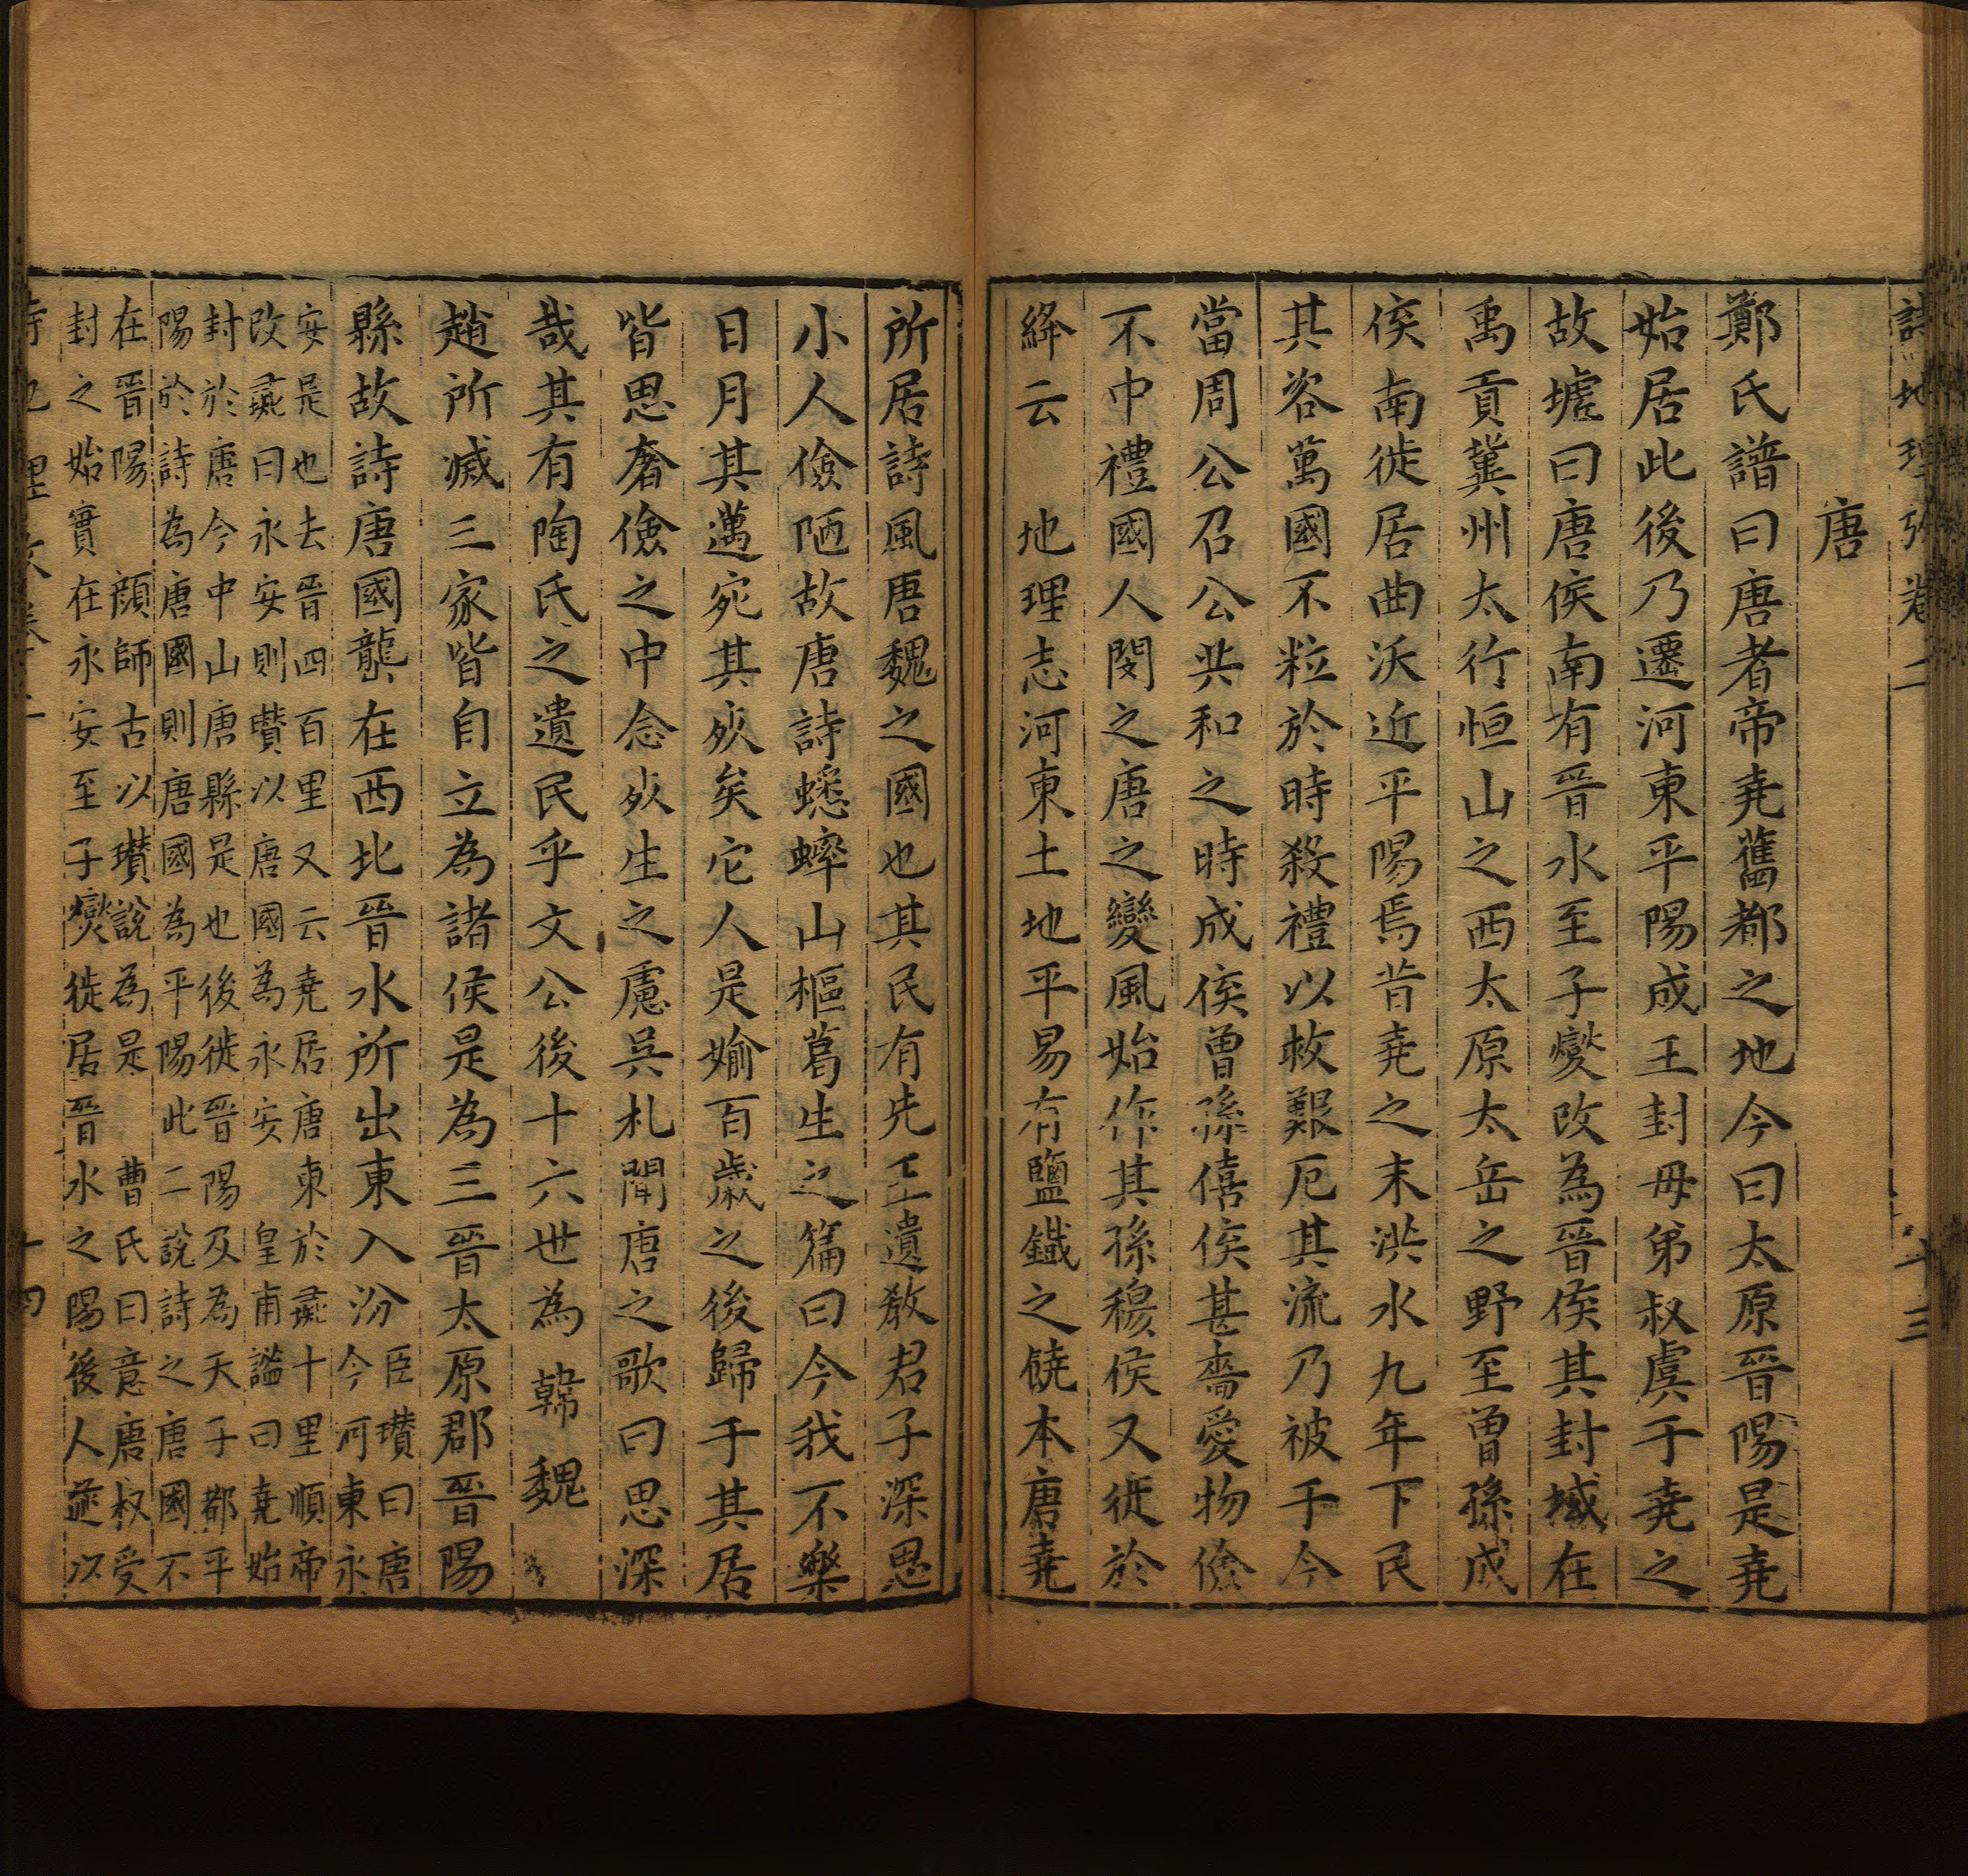 詩地理攷卷二 十三
唐
鄭氏譜曰唐者帝堯舊都之地今曰太原晉陽是堯
始居此後乃遷河東平陽成王封母弟叔虞于堯之
故墟曰唐侯南有晉水至子燮改為晉侯其封域在
禹貢冀州太行恒山之西太原太岳之野至曾孫成
侯南徙居曲沃近平陽焉昔堯之末洪水九年下民
其咨萬國不粒於時殺禮以救艱厄其流乃被于今
當周公召公共和之時成侯曾孫僖侯甚嗇愛物儉
不中禮國人閔之唐之變風始作其孫穆侯又徙於
絳云 地理志河東土地平易有鹽鐵之饒本唐堯
所居詩風唐魏之國也其民有先王遺教君子深思
小人儉陋故唐詩蟋蟀山樞葛生之篇曰今我不樂
日月其邁宛其死矣它人是媮百歲之後歸于其居
皆思奢儉之中念死生之慮吳札聞唐之歌曰思深
哉其有陶氏之遺民乎文公後十六世為韓魏
趙所滅三家皆自立為諸侯是為三晉太原郡晉陽
縣故詩唐國龍在西北晉水所出東入汾
臣瓚曰唐
今河東永
安是也去晉四百里又云堯居唐東於彘十里順帝
改彘曰永安則瓚以唐國為永安 皇甫謐曰堯始
封於唐今中山唐縣是也後徙晉陽及為天子都平
陽於詩為唐國則唐國為平陽此二說詩之唐國不
在晉陽 顏師古以瓚說為是 曹氏曰意唐叔受
封之始實在永安至子燮徙居晉水之陽後人遂以
詩地理攷卷二 十四